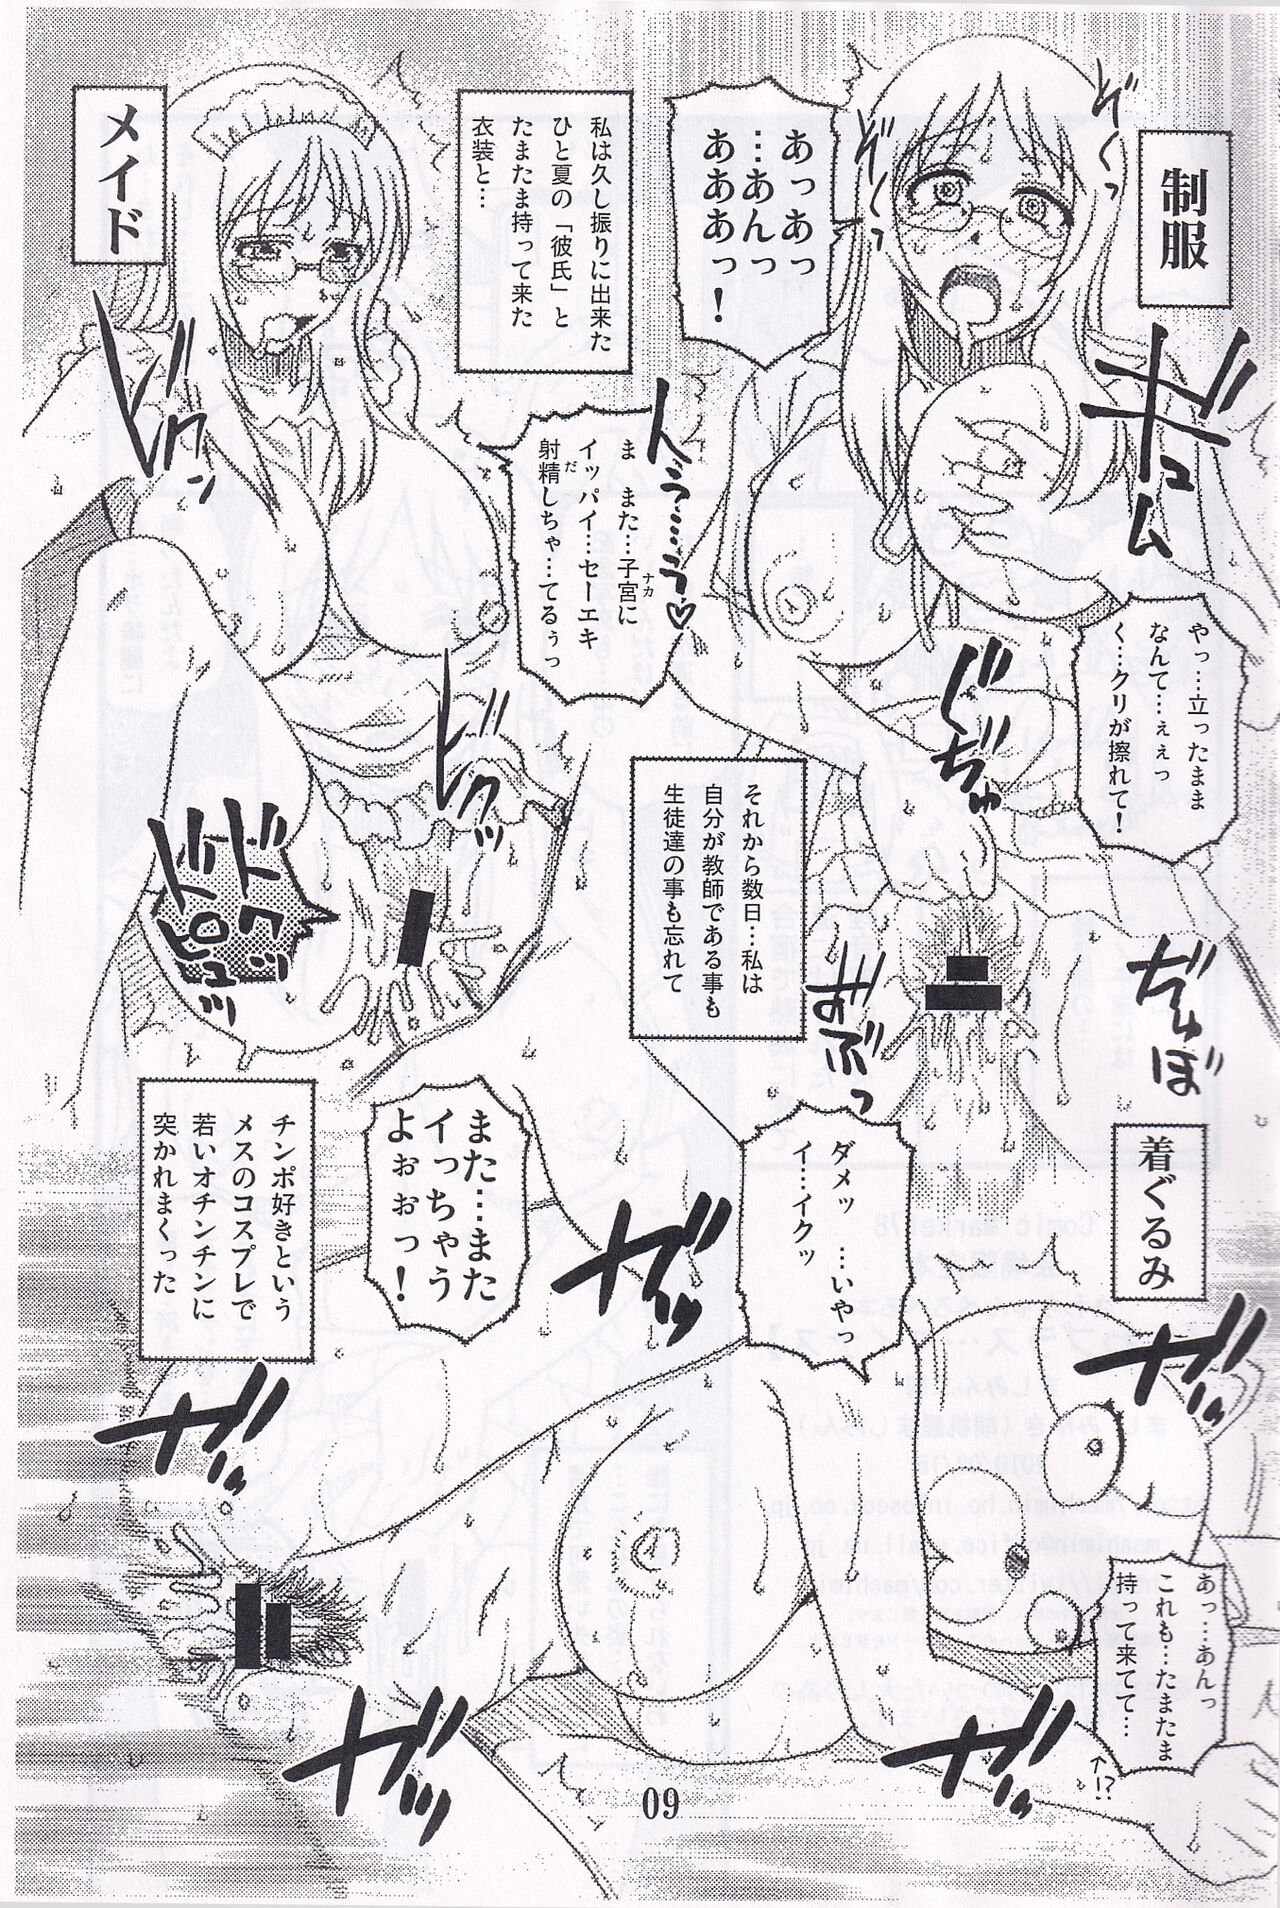 制服
ぞくっ
ぞくっ
あっあっ
…あんっ
あああっ!
ギュム
やっ…立ったまま
なんて…ぇぇっ
く…クリが擦れて!
じぢゅ
だゅぼ
ずぶっ
私は久し振りに出来た
ひと夏の「彼氏」と
たまたま持って来た
衣装と…
メイド
ドクン
んうう……うっ♡
ま また…子宮に
ナカ
イッパイ…セーエキ
射精しちゃ…てるぅっ
だ
ドクッ
ドクッ
ドピュッ
それから数日…私は
自分が教師である事も
生徒達の事も忘れて
着ぐるみ
ダメッ …いやっ
イ…イクッ
また…また
イっちゃう
よぉぉっ!
チンポ好きという
メスのコスプレで
若いオチンチンに
突かれまくった
ガッ
ガッ
ガッ
ガッ
ガッ
あっ…あんっ
これも…たまたま
持って来てて…
↑!?
09